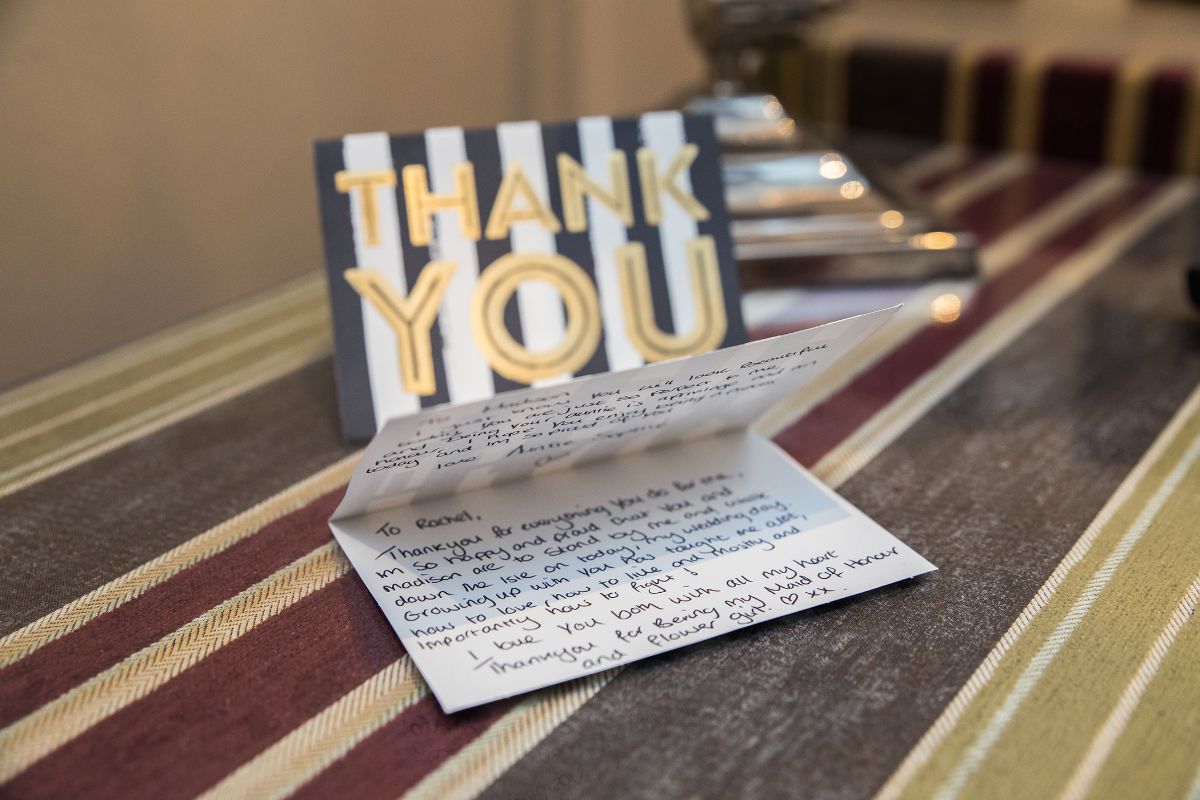 THANK
YOU
Madison You will look beautiful
you are just so perfect to me
and Being your auntie is a privilage and an
honour, I hope you enjoy being a
today and im so proud of you
love Auntie
To Rachel,
Thankyou for everything you do for me,
im so happy and proud that you and
madison are to stand by me and
down the Isle on today, my wedding day.
Growing up with you has taught me alot,
how to love how to live and mostly and
Importantly how to fight!
I love you both with all my heart
Thankyou for Being my Maid of Honour
and flower girl. ♡ xx